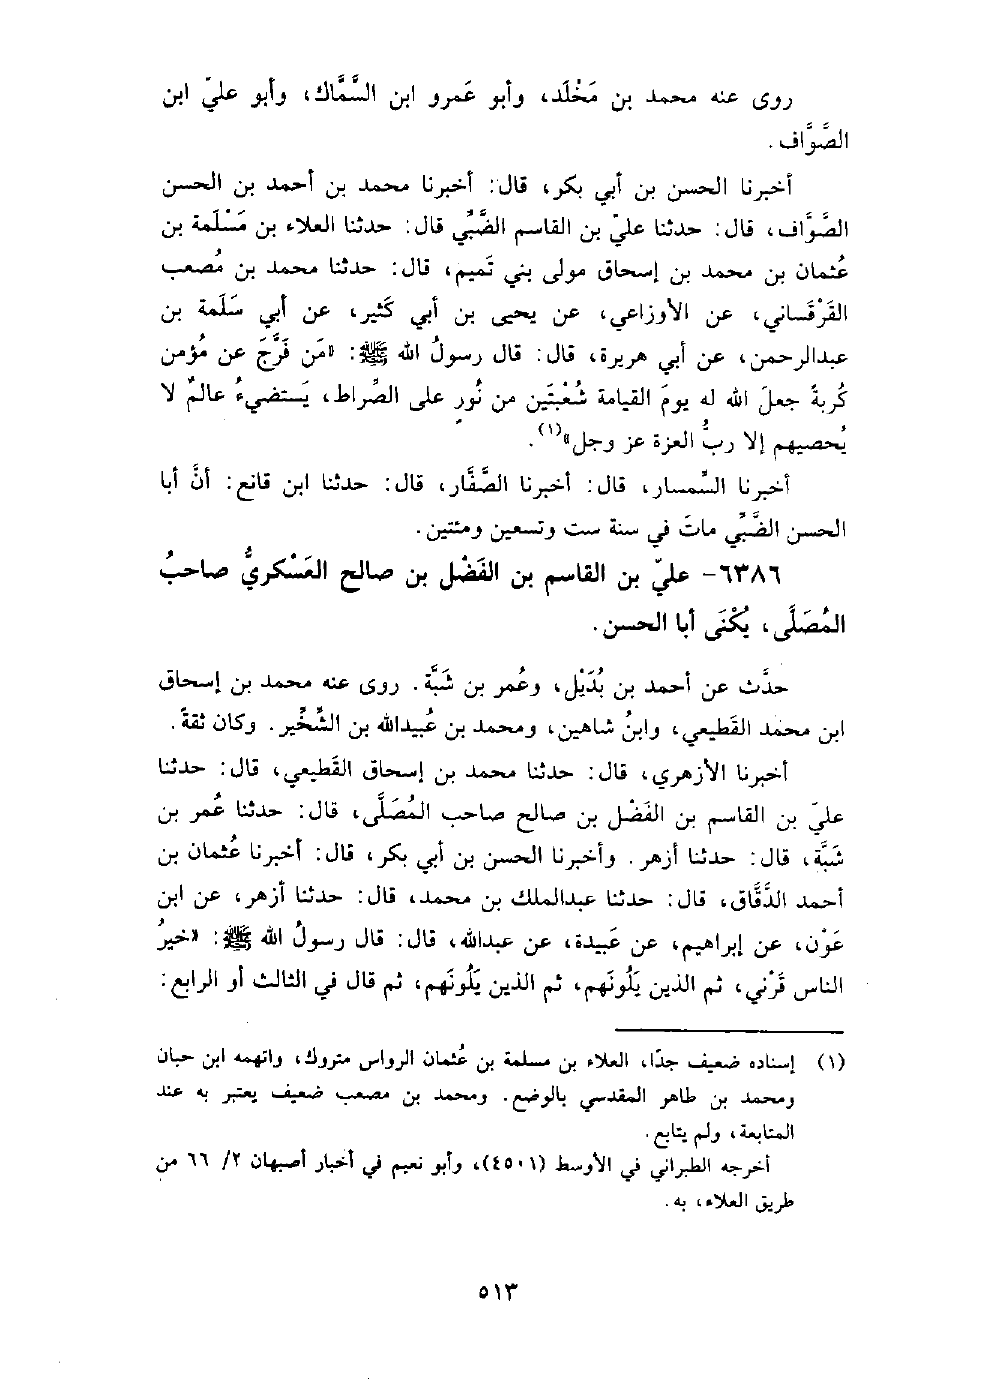 روى عنه محمد بن مَخْلَد، وأبو عَمرو ابن السَّمَّاك، وأبو عليّ ابن
الصَّوَّاف .
أخبرنا الحسن بن أبي بكر، قال: أخبرنا محمد بن أحمد بن الحسن
الصَّوَّاف، قال: حدثنا عليّ بن القاسم الضَّبِّي قال: حدثنا العلاء بن مَسْلَمة بن
عُثمان بن محمد بن إسحاق مولى بني تَميم، قال: حدثنا محمد بن مُصعب
القَرْقَساني، عن الأوزاعي، عن يحيى بن أبي كَثير، عن أبي سَلَمة بن
عبدالرحمن، عن أبي هريرة، قال: قال رسولُ الله ﷺ: «مَن فَرَّجَ عن مُؤمن
كُربةً جعلَ الله له يومَ القيامة شُعْبَتَين من نُورٍ على الصِّراط، يَستضيءُ عالمٌ لا
يُحصيهم إلا ربُّ العزة عز وجل»(١).
أخبرنا السِّمسار، قال: أخبرنا الصَّفَّار، قال: حدثنا ابن قانع: أنَّ أبا
الحسن الضَّبِّي ماتَ في سنة ست وتسعين ومئتين.
٦٣٨٦- عليّ بن القاسم بن الفَضْل بن صالح العَسْكريُّ صاحبُ
المُصَلَّى، يُكْنَى أبا الحسن.
حدَّث عن أحمد بن بُدَيْل، وعُمر بن شَبَّة. روى عنه محمد بن إسحاق
ابن محمد القَطيعي، وابنُ شاهين، ومحمد بن عُبيدالله بن الشِّخِّير. وكان ثقةً.
أخبرنا الأزهري، قال: حدثنا محمد بن إسحاق القَطيعي، قال: حدثنا
عليّ بن القاسم بن الفَضْل بن صالح صاحب المُصَلَّى، قال: حدثنا عُمر بن
شَبَّة، قال: حدثنا أزهر. وأخبرنا الحسن بن أبي بكر، قال: أخبرنا عُثمان بن
أحمد الدَّقَّاق، قال: حدثنا عبدالملك بن محمد، قال: حدثنا أزهر، عن ابن
عَوْن، عن إبراهيم، عن عَبيدة، عن عبدالله، قال: قال رسولُ الله ﷺ: «خيرُ
الناس قَرْني، ثم الذين يَلُونَهم، ثم الذين يَلُونَهم، ثم قال في الثالث أو الرابع:
(١) إسناده ضعيف جدًا، العلاء بن مسلمة بن عُثمان الرواس متروك، واتهمه ابن حبان
ومحمد بن طاهر المقدسي بالوضع. ومحمد بن مصعب ضعيف يعتبر به عند
المتابعة، ولم يتابع.
أخرجه الطبراني في الأوسط (٤٥٠٦)، وأبو نعيم في أخبار أصبهان ٢/ ٦٦ من
طريق العلاء، به.
٥١٣